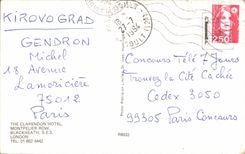 KIROVOGRAD
GENDRON
Michel
18 Avenue
Lamoricière
75012
Paris
THE CLARENDON HOTEL,
MONTPELIER ROW,
BLACKHEATH, S.E.3,
LONDON
TEL: 01-852 4442
2,50
Concours Télé 7 Jours
Trouvez la Cité Cachée
Cedex 3050
99305 Paris Concours